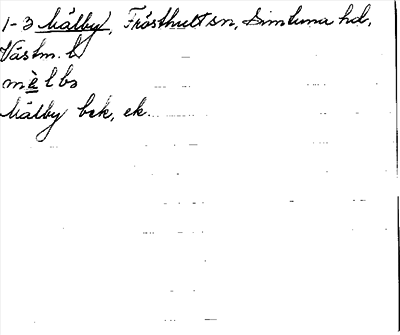 1-3 Mälby, Frösthult sn, Simtuna hd,
Västm. l
mèlbo
Mälby bek, ek.